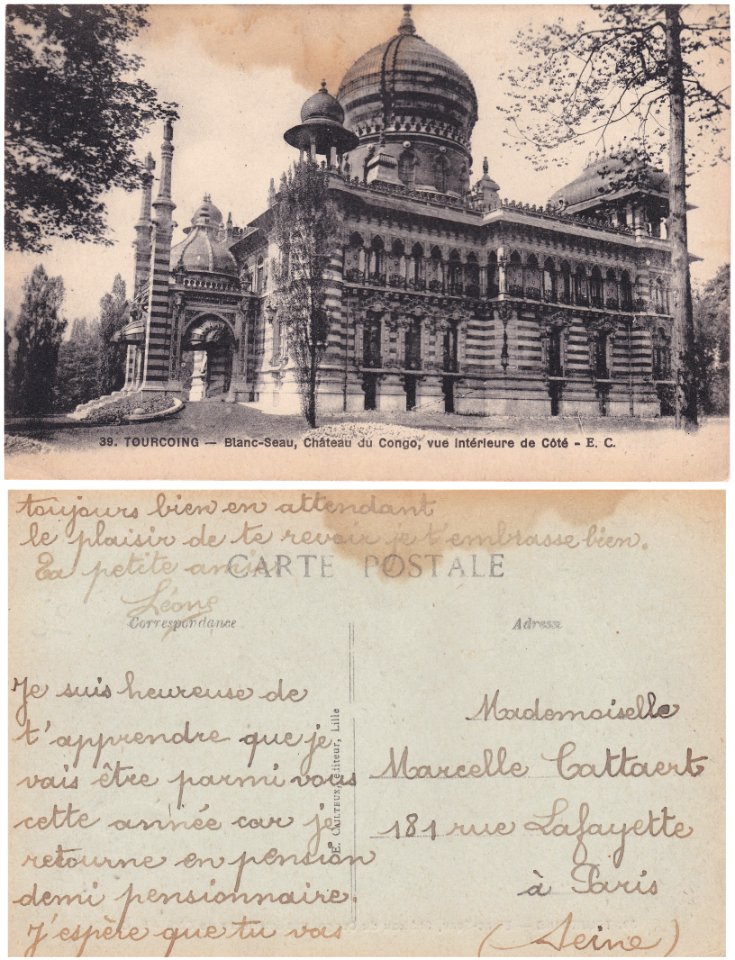 39. TOURCOING — Blanc-Seau, Château du Congo, vue intérieure de Côté - E. C.
toujours bien en attendant
le plaisir de te revoir je t'embrasse bien.
Ta petite amie
Léone
CARTE POSTALE
Correspondance
Je suis heureuse de
t'apprendre que je
vais être parmi vous
cette année car je
retourne en pension
demi pensionnaire.
J'espère que tu vas
E. CAULTEUX, éditeur, Lille
Adresse
Mademoiselle
Marcelle Cattaert
181 rue Lafayette
à Paris
(Seine)